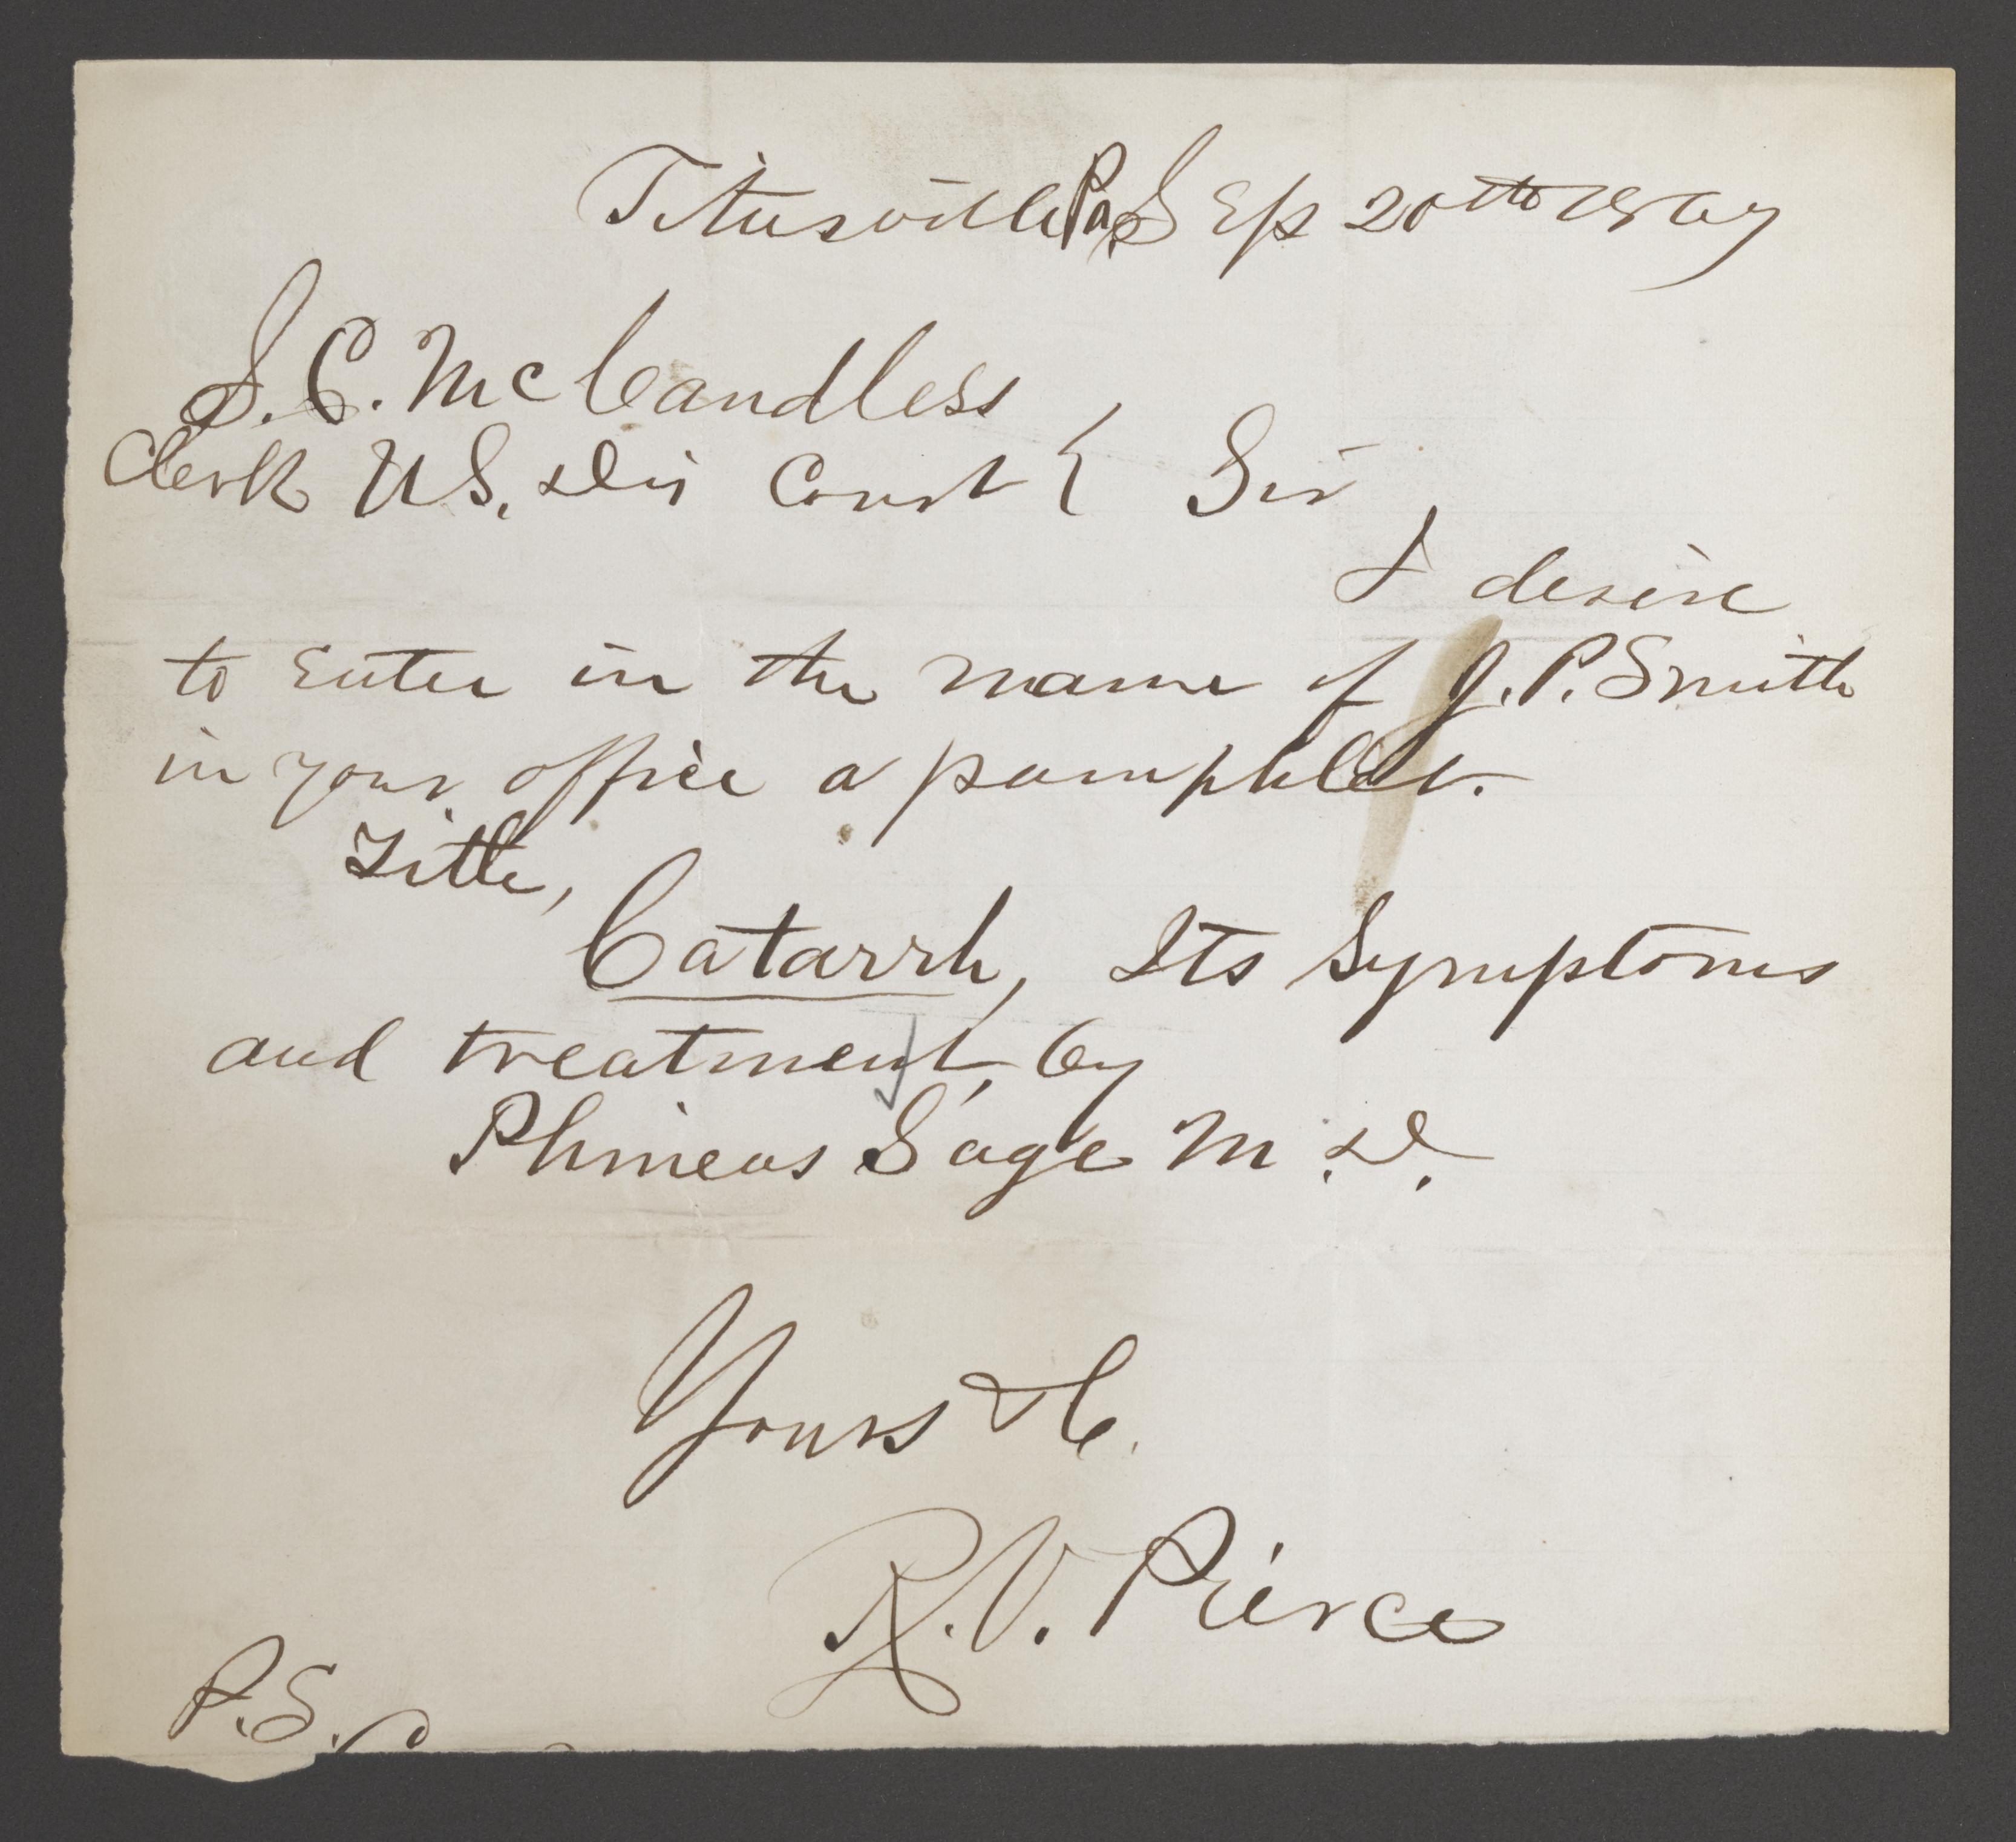 Titusville Pa, Sep 20th 1867
S. C. McCandless
Clerk U S. Dis Court } Sir,
I desire
to Enter in the name of J. P. Smith
in your office a pamphlet.
Title,
Catarrh, Its Symptoms
and treatment, by
Phineus Sage M.D.
Yours &C.
R. V. Pierce
P. S.